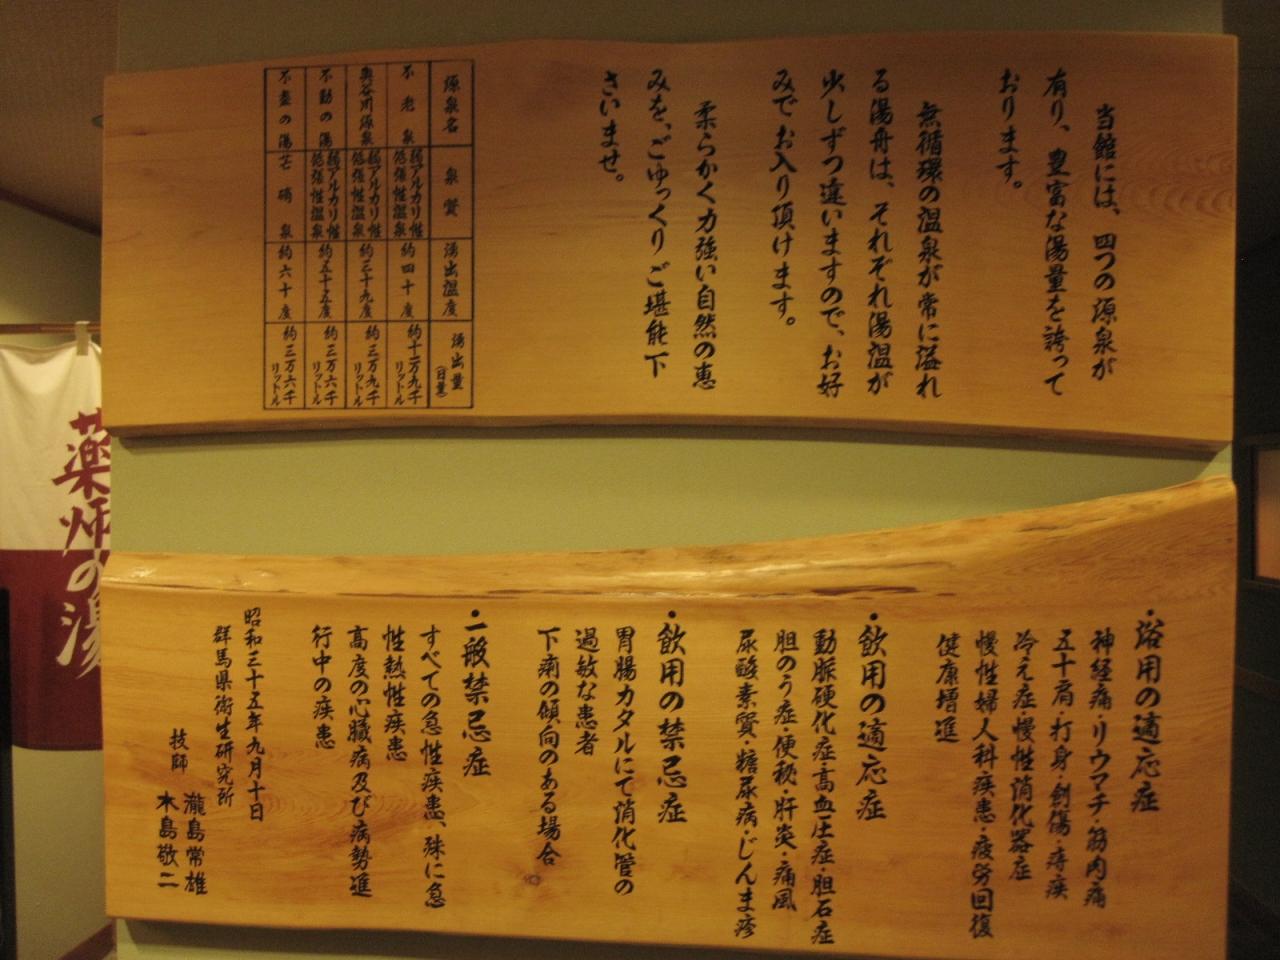 当館には、四つの源泉が
有り、豊富な湯量を誇って
おります。
無循環の温泉が常に溢れ
る湯舟は、それぞれ湯温が
少しずつ違いますので、お好
みでお入り頂けます。
柔らかく力強い自然の恵
みを、ごゆっくりご堪能下
さいませ。
源泉名 泉質 湧出温度 湧出量(日量)
不老泉 弱アルカリ性低張性温泉 約四十度 約十二万九千リットル
奥谷川源泉 弱アルカリ性低張性温泉 約三十九度 約三万九千リットル
不動の湯 弱アルカリ性低張性温泉 約五十五度 約三万六千リットル
不盡の湯 芒硝泉 約六十度 約三万六千リットル
・浴用の適応症
神経痛・リウマチ・筋肉痛
五十肩・打身・創傷・痔疾
冷え症・慢性消化器症
慢性婦人科疾患・疲労回復
健康増進
・飲用の適応症
動脈硬化症・高血圧症・胆石症
胆のう症・便秘・肝炎・痛風
尿酸素質・糖尿病・じんま疹
・飲用の禁忌症
胃腸カタルにて消化管の
過敏な患者
下痢の傾向のある場合
・一般禁忌症
すべての急性疾患、殊に急
性熱性疾患
高度の心臓病及び病勢進
行中の疾患
昭和三十五年九月十日
群馬県衛生研究所
技師 瀧島常雄
木島敬二
薬師の湯